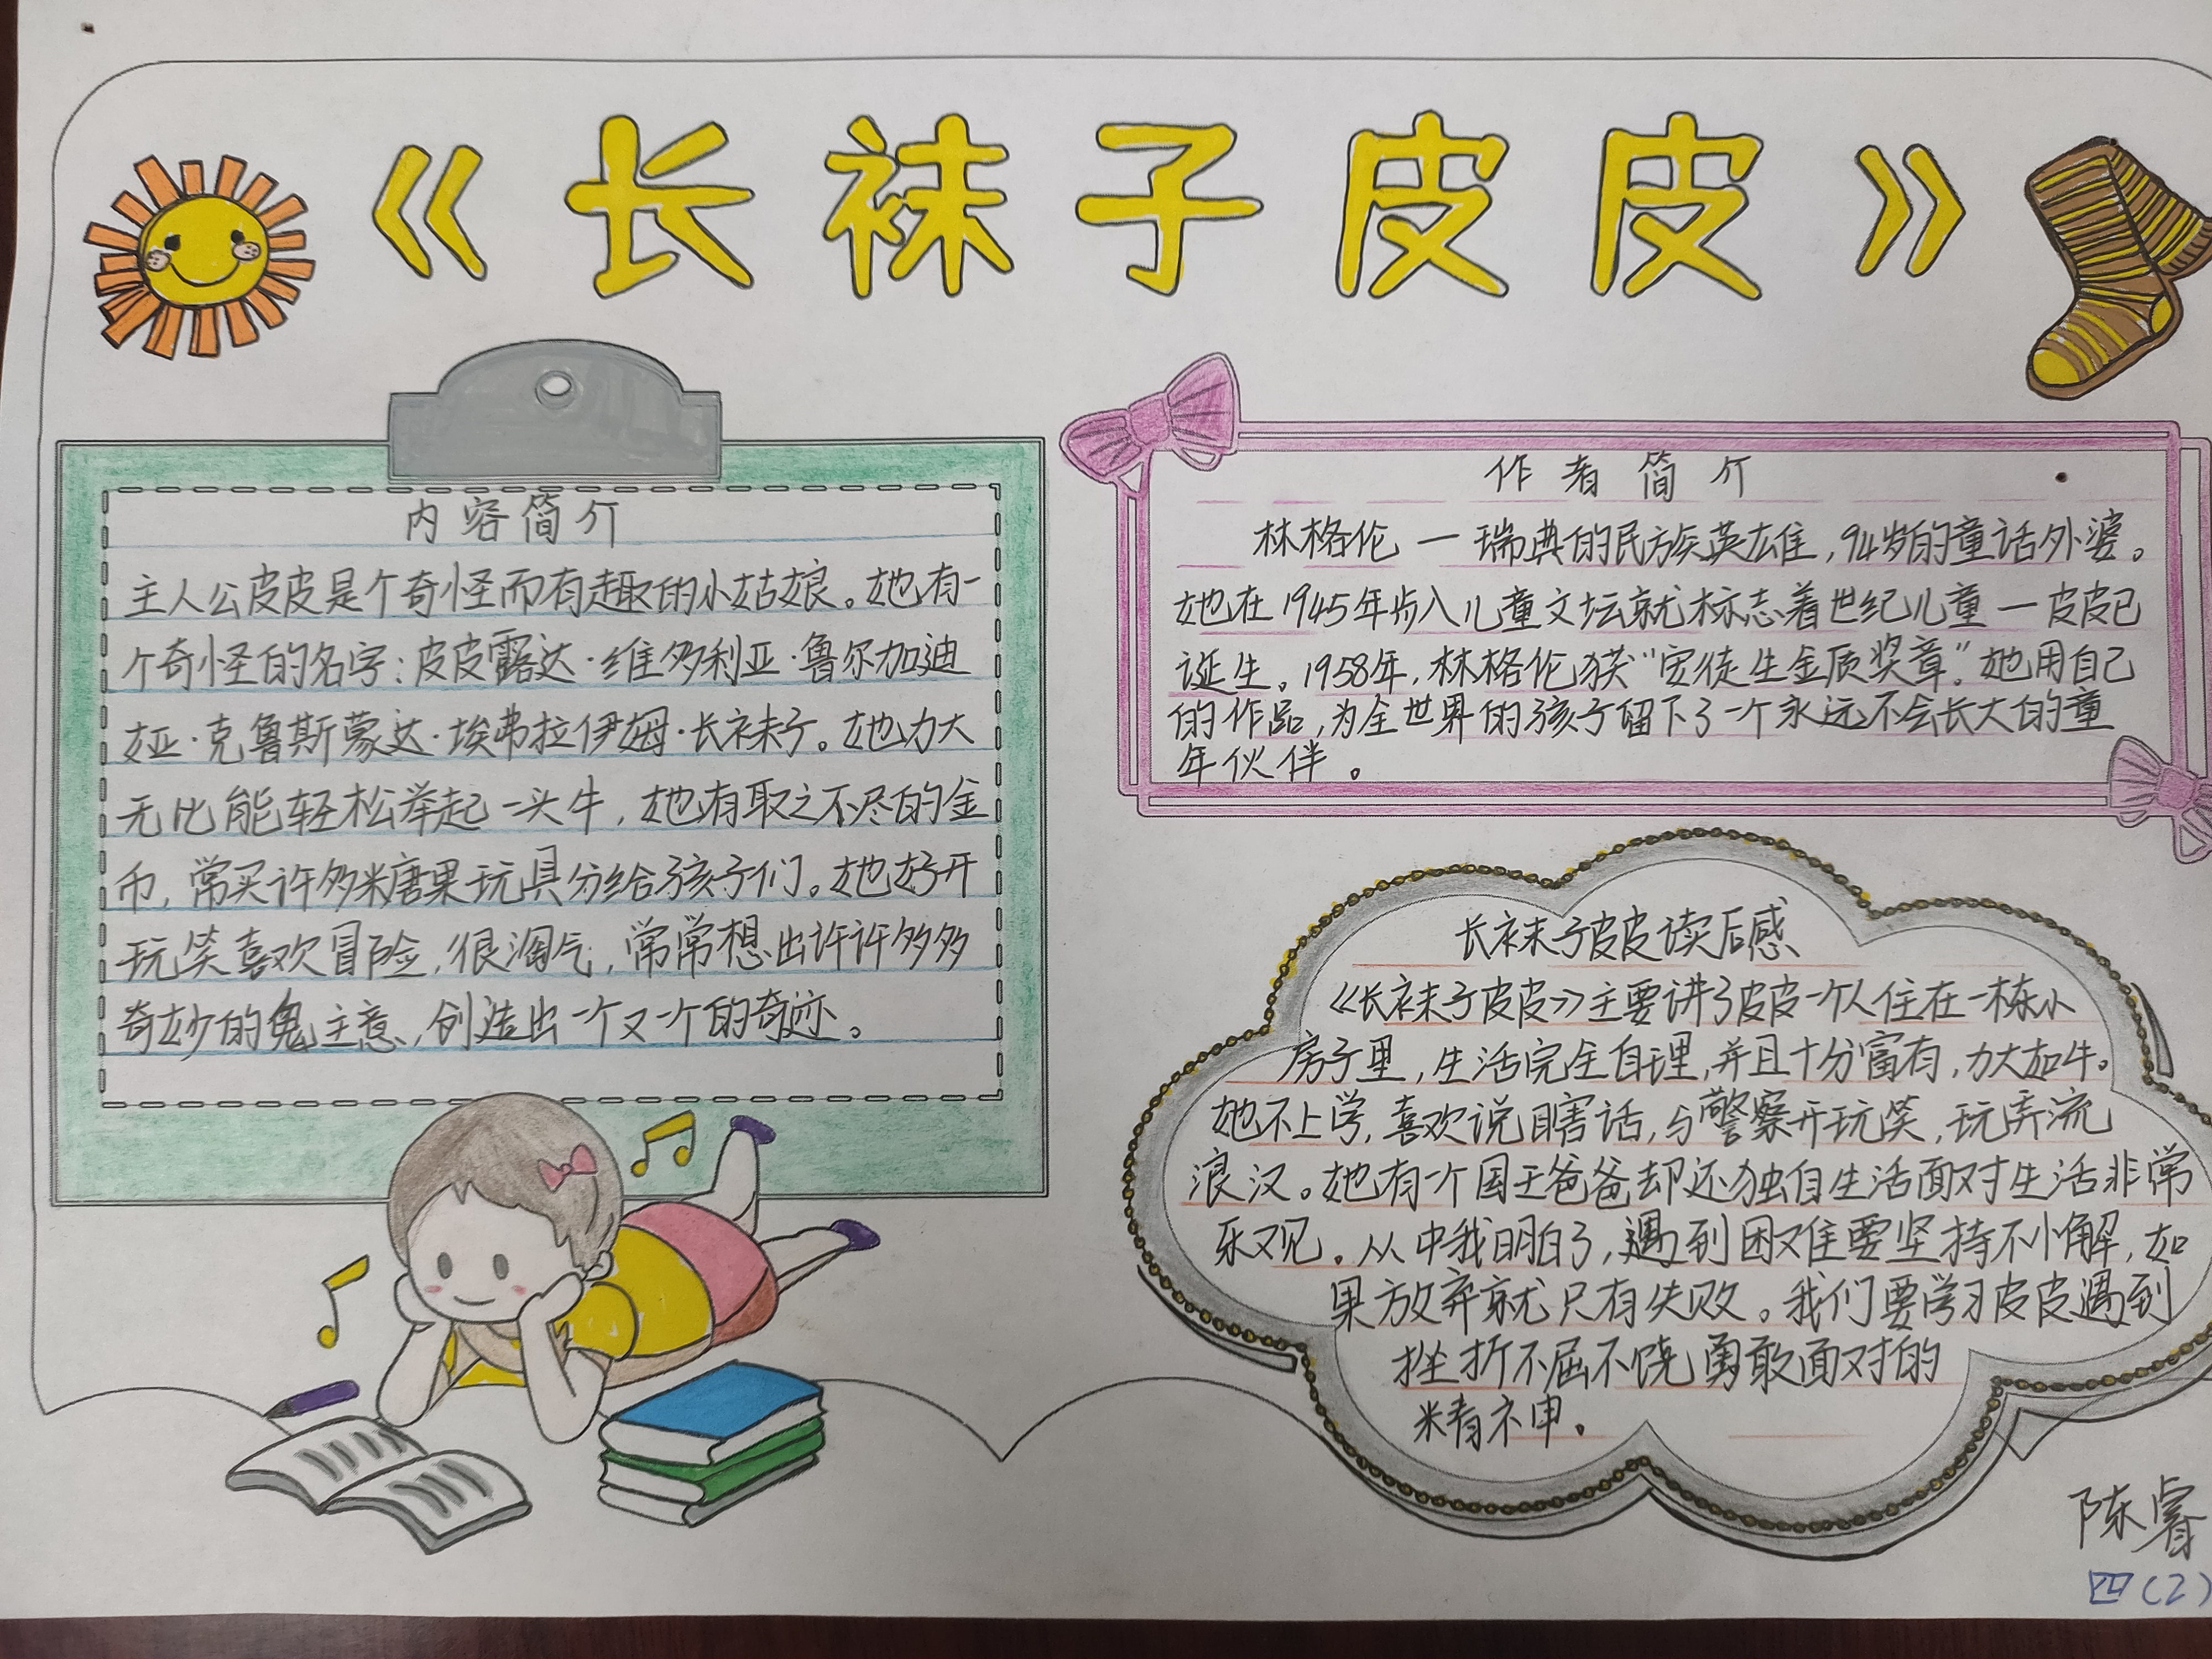 《长袜子皮皮》
内容简介
主人公皮皮是个奇怪而有趣的小姑娘。她有一
个奇怪的名字：皮皮露达·维多利亚·鲁尔加迪
娅·克鲁斯蒙达·埃弗拉伊姆·长袜子。她力大
无比能轻松举起一头牛，她有取之不尽的金
币，常买许多糖果玩具分给孩子们。她好开
玩笑喜欢冒险，很淘气，常常想出许许多多
奇妙的鬼主意，创造出一个又一个的奇迹。
作者简介
林格伦—瑞典的民族英雄，94岁的童话外婆。
她在1945年步入儿童文坛就标志着世纪儿童—皮皮已
诞生。1958年，林格伦获“安徒生金质奖章”。她用自己
的作品，为全世界的孩子留下了一个永远不会长大的童
年伙伴。
长袜子皮皮读后感
《长袜子皮皮》主要讲了皮皮一个人住在一栋小
房子里，生活完全自理，并且十分富有，力大如牛。
她不上学，喜欢说瞎话，与警察开玩笑，玩弄流
浪汉。她有一个国王爸爸却还独自生活面对生活非常
乐观。从中我明白了，遇到困难要坚持不懈，如
果放弃就只有失败。我们要学习皮皮遇到
挫折不屈不饶勇敢面对的
精神。
陈睿
四(2)